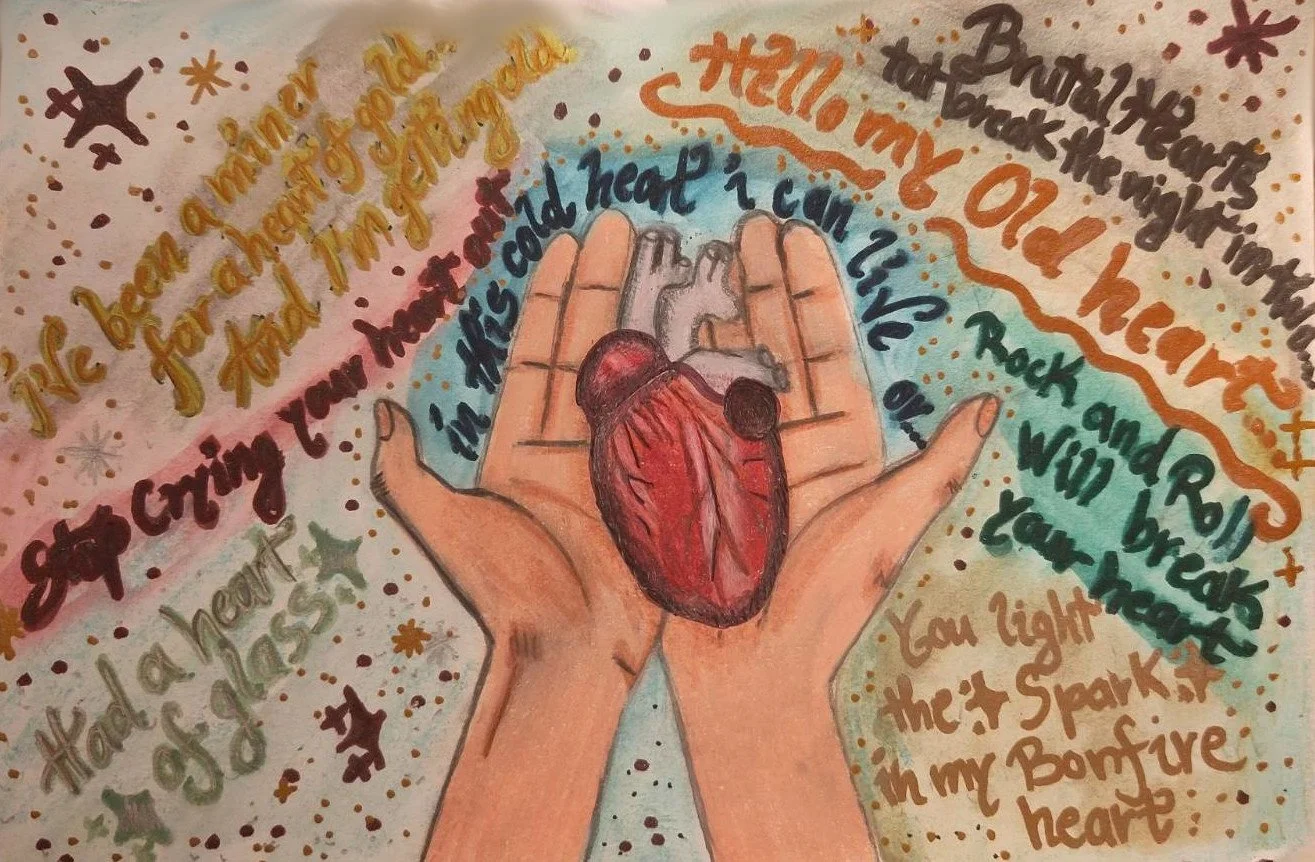 i've been a miner
for a heart of gold..
And I'm getting old
Stop Crying your heart out
Had a heart
of glass
in this cold heart i can live
or....
Hello my Old heart
Brutal Hearts
tat break the night in two
Rock and Roll
Will break
Your heart
You light
the Spark
in my Bonfire
heart